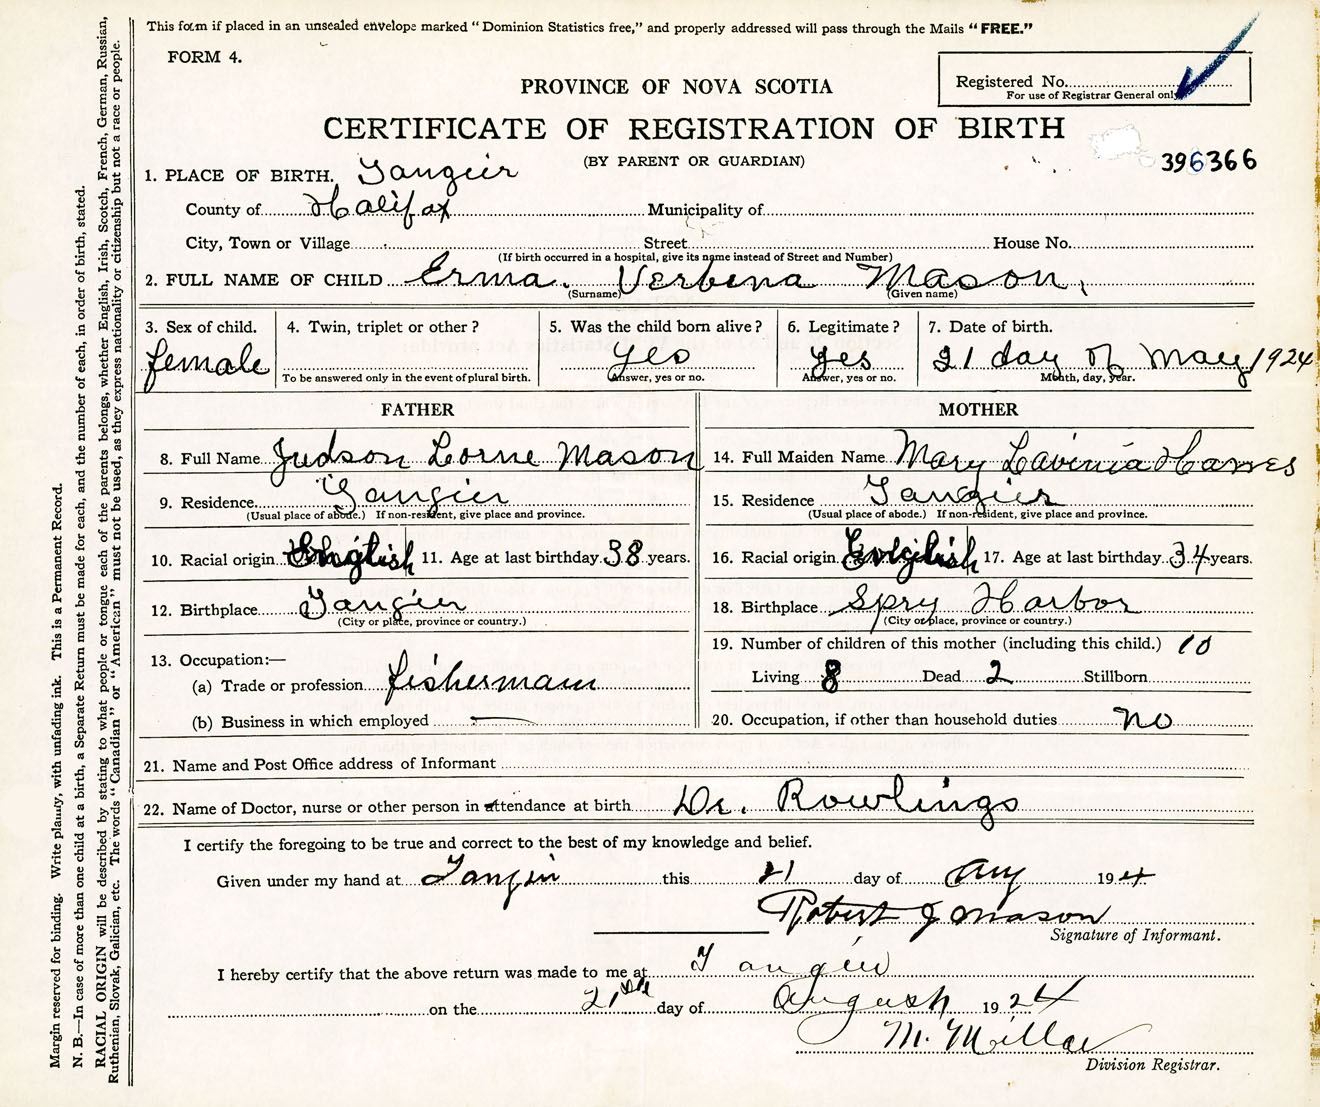 This form if placed in an unsealed envelope marked "Dominion Statistics free," and properly addressed will pass through the Mails "FREE."
FORM 4.
Registered No.
For use of Registrar General only
PROVINCE OF NOVA SCOTIA
CERTIFICATE OF REGISTRATION OF BIRTH
(BY PARENT OR GUARDIAN)
396366
1. PLACE OF BIRTH. Tangier
County of Halifax Municipality of
City, Town or Village Street House No.
(If birth occurred in a hospital, give its name instead of Street and Number)
2. FULL NAME OF CHILD Erma. Verbena Mason,
(Surname) (Given name)
3. Sex of child. 4. Twin, triplet or other? 5. Was the child born alive? 6. Legitimate? 7. Date of birth.
female yes yes 21 day of May 1924
To be answered only in the event of plural birth. (Answer, yes or no. Answer, yes or no. Month, day, year.
FATHER MOTHER
8. Full Name Judson Lorne Mason 14. Full Maiden Name Mary Lavinia Hawes
9. Residence Tangier 15. Residence Tangier
(Usual place of abode.) If non-resident, give place and province. (Usual place of abode.) If non-resident, give place and province.
10. Racial origin English 11. Age at last birthday 38 years. 16. Racial origin English 17. Age at last birthday 34 years.
12. Birthplace Tangier 18. Birthplace Spry Harbor
(City or place, province or country.) (City or place, province or country.)
19. Number of children of this mother (including this child.) 10
13. Occupation:—
(a) Trade or profession fishermam Living 8 Dead 2 Stillborn
(b) Business in which employed — 20. Occupation, if other than household duties no
21. Name and Post Office address of Informant
22. Name of Doctor, nurse or other person in attendance at birth Dr. Rowlings
I certify the foregoing to be true and correct to the best of my knowledge and belief.
Given under my hand at Tangier this 21 day of Aug 1924
Robert J Mason
Signature of Informant.
I hereby certify that the above return was made to me at Tangier
on the 21st day of August 1924
M. Millar
Division Registrar.
Margin reserved for binding. Write plainly, with unfading ink. This is a Permanent Record.
N. B.—In case of more than one child at a birth, a Separate Return must be made for each, and the number of each, in order of birth, stated.
RACIAL ORIGIN will be described by stating to what people or tongue each of the parents belongs, whether English, Irish, Scotch, French, German, Russian,
Ruthenian, Slovak, Galician, etc. The words "Canadian" or "American" must not be used, as they express nationality or citizenship but not a race or people.